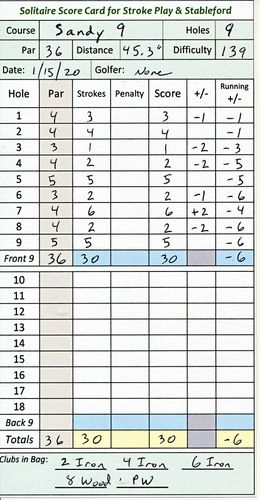 Solitaire Score Card for Stroke Play & Stableford
Course Sandy 9 Holes 9
Par 36 Distance 45.3" Difficulty 139
Date: 1/15/20 Golfer: None
Hole Par Strokes Penalty Score +/- Running +/-
1 4 3 3 -1 -1
2 4 4 4 -1
3 3 1 1 -2 -3
4 4 2 2 -2 -5
5 5 5 5 -5
6 3 2 2 -1 -6
7 4 6 6 +2 -4
8 4 2 2 -2 -6
9 5 5 5 -6
Front 9 36 30 30 -6
10
11
12
13
14
15
16
17
18
Back 9
Totals 36 30 30 -6
Clubs in Bag: 2 Iron 4 Iron 6 Iron
8 Wood . PW